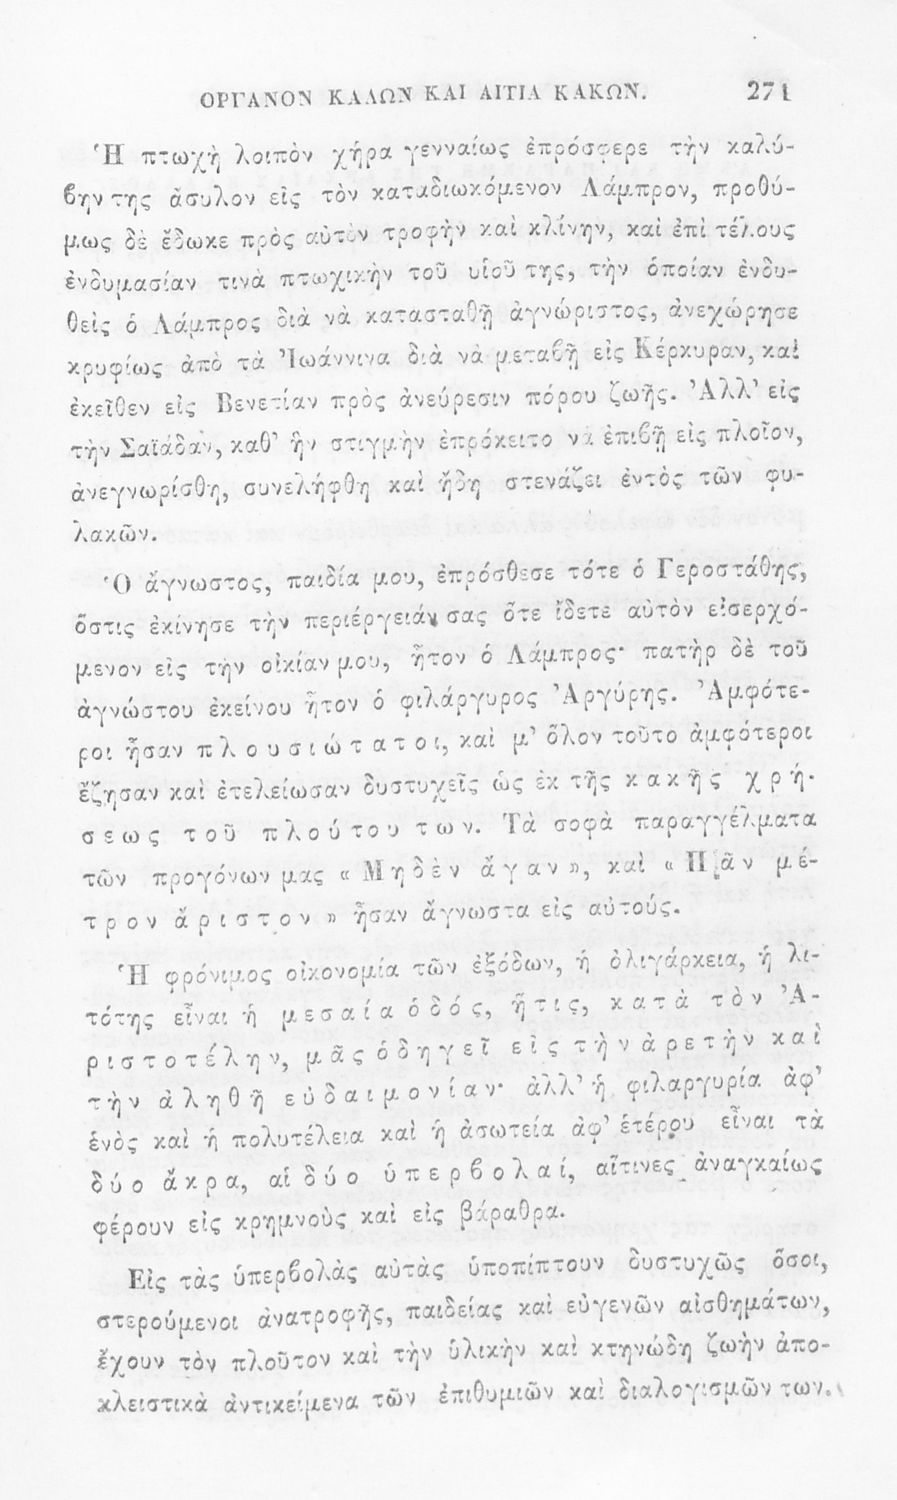 ΟΡΓΑΝΟΝ ΚΑΛΩΝ ΚΑΙ ΑΙΤΙΑ ΚΑΚΩΝ. 271
Ἡ πτωχὴ λοιπὸν χήρα γενναίως ἐπρόσφερε τὴν καλύ-
ϐην της ἄσυλον εἰς τὸν καταδιωκόμενον Λάμπρον, προθύ-
μως δὲ ἔδωκε πρὸς αὐτὸν τροφὴν καὶ κλίνην, καὶ ἐπὶ τέλους
ἐνδυμασίαν τινὰ πτωχικὴν τοῦ υἱοῦ της, τὴν ὁποίαν ἐνδυ-
θεὶς ὁ Λάμπρος διὰ νὰ κατασταθῇ ἀγνώριστος, ἀνεχώρησε
κρυφίως ἀπὸ τὰ Ἰωάννινα διὰ νὰ μεταϐῇ εἰς Κέρκυραν, καὶ
ἐκεῖθεν εἰς Βενετίαν πρὸς ἀνεύρεσιν πόρου ζωῆς. Ἀλλ’ εἰς
τὴν Σαϊάδαν, καθ’ ἣν στιγμὴν ἐπρόκειτο νὰ ἐπιϐῇ εἰς πλοῖον,
ἀνεγνωρίσθη, συνελήφθη καὶ ἤδη στενάζει ἐντὸς τῶν φυ-
λακῶν.
Ὁ ἄγνωστος, παιδία μου, ἐπρόσθεσε τότε ὁ Γεροστάθης,
ὅστις ἐκίνησε τὴν περιέργειάν σας ὅτε ἴδετε αὐτὸν εἰσερχό-
μενον εἰς τὴν οἰκίαν μου, ἦτον ὁ Λάμπρος· πατὴρ δὲ τοῦ
ἀγνώστου ἐκείνου ἦτον ὁ φιλάργυρος Ἀργύρης. Ἀμφότε-
ροι ἦσαν πλουσιώτατοι, καὶ μ’ ὅλον τοῦτο ἀμφότεροι
ἔζησαν καὶ ἐτελείωσαν δυστυχεῖς ὡς ἐκ τῆς κακῆς χρή-
σεως τοῦ πλούτου των. Τὰ σοφὰ παραγγέλματα
τῶν προγόνων μας « Μηδὲν ἄγαν », καὶ « Πᾶν μέ-
τρον ἄριστον » ἦσαν ἄγνωστα εἰς αὐτούς.
Ἡ φρόνιμος οἰκονομία τῶν ἐξόδων, ἡ ὀλιγάρκεια, ἡ λι-
τότης εἶναι ἡ μεσαία ὁδός, ἥτις, κατὰ τὸν Ἀ-
ριστοτέλην, μᾶς ὁδηγεῖ εἰς τὴν ἀρετὴν καὶ
τὴν ἀληθῆ εὐδαιμονίαν· ἀλλ’ ἡ φιλαργυρία ἀφ’
ἑνὸς καὶ ἡ πολυτέλεια καὶ ἡ ἀσωτεία ἀφ’ ἑτέρου εἶναι τὰ
δύο ἄκρα, αἱ δύο ὑπερϐολαί, αἵτινες ἀναγκαίως
φέρουν εἰς κρημνοὺς καὶ εἰς βάραθρα.
Εἰς τὰς ὑπερϐολὰς αὐτὰς ὑποπίπτουν δυστυχῶς ὅσοι,
στερούμενοι ἀνατροφῆς, παιδείας καὶ εὐγενῶν αἰσθημάτων,
ἔχουν τὸν πλοῦτον καὶ τὴν ὑλικὴν καὶ κτηνώδη ζωὴν ἀπο-
κλειστικὰ ἀντικείμενα τῶν ἐπιθυμιῶν καὶ διαλογισμῶν των.